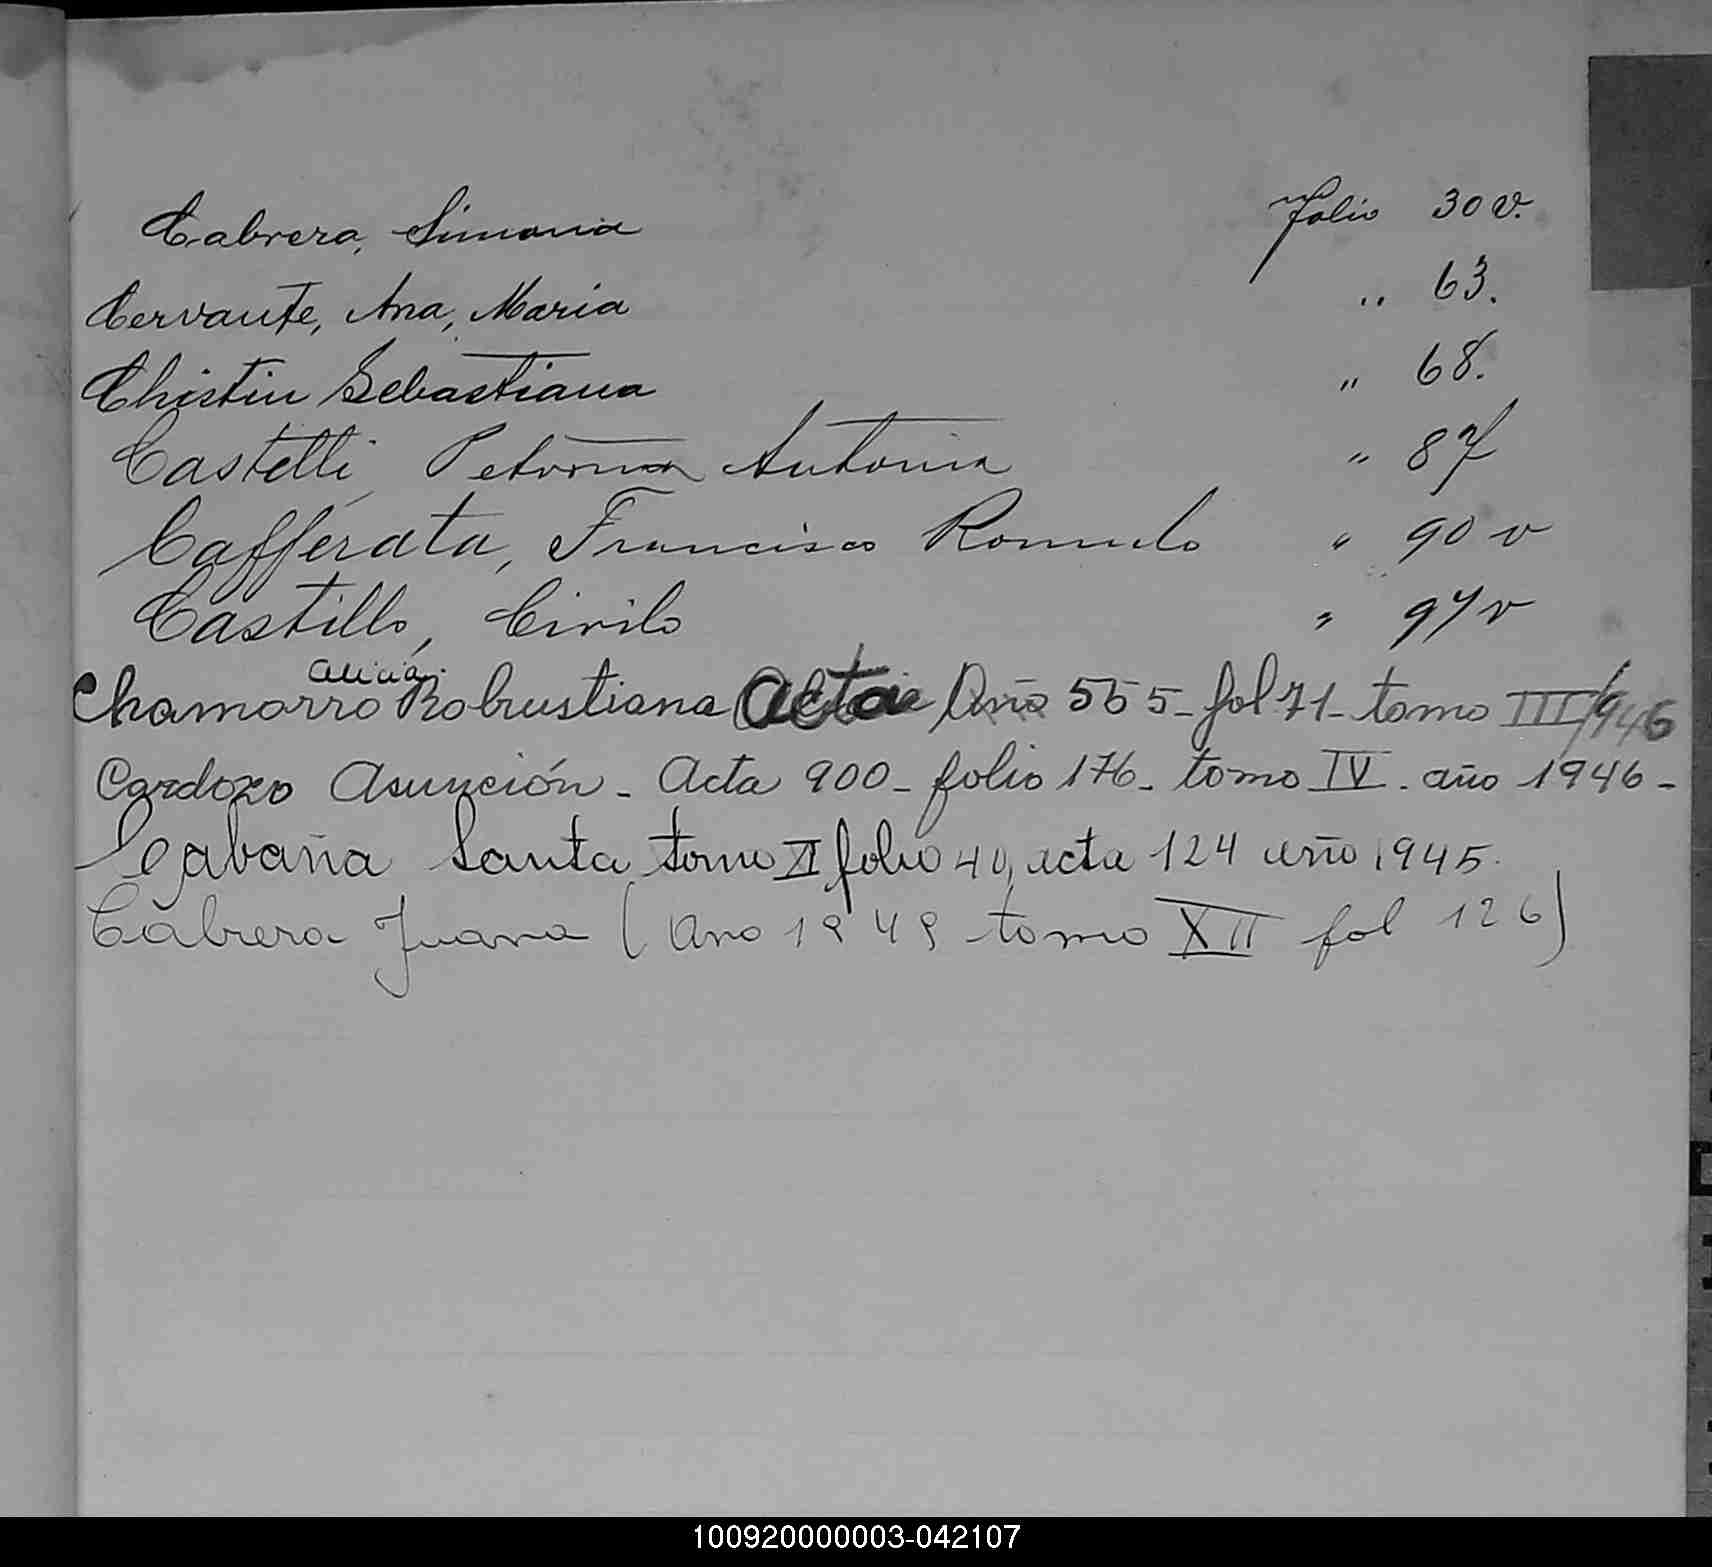 Cabrera, Simona folio 30 v.
Cervante, Ana, Maria " 63.
Chistin Sebastiana " 68.
Castelli Petrona Antonia " 87
Cafferata, Francisco Romulo " 90 v
Castillo, Cirilo " 97 v
Alicia
Chamorro Robustiana Acta Año 555 - fol 71 - tomo III/946
Cardozo Asunción - Acta 900 - folio 176 - tomo IV. año 1946 -
Cabaña Santa tomo XI folio 40, acta 124 año 1945.
Cabrera Juana (Ano 1949 tomo XII fol 126)
100920000003-042107